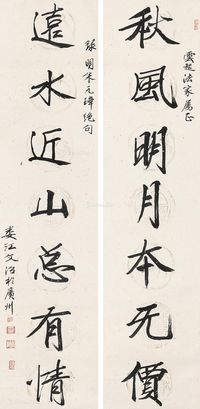 秋風明月本无價
雲起法家屬正
遠水近山总有情
明朱元璋絶句
婁江文治於廣州